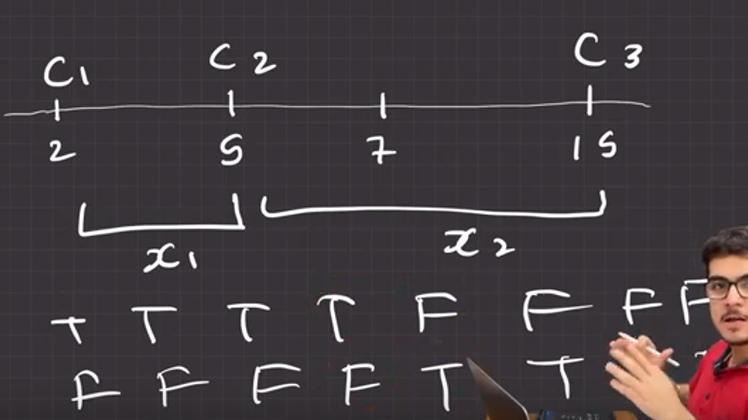 C1 C2 C3
2 5 7 15
x1 x2
T T T T F F F F
F F F F T T